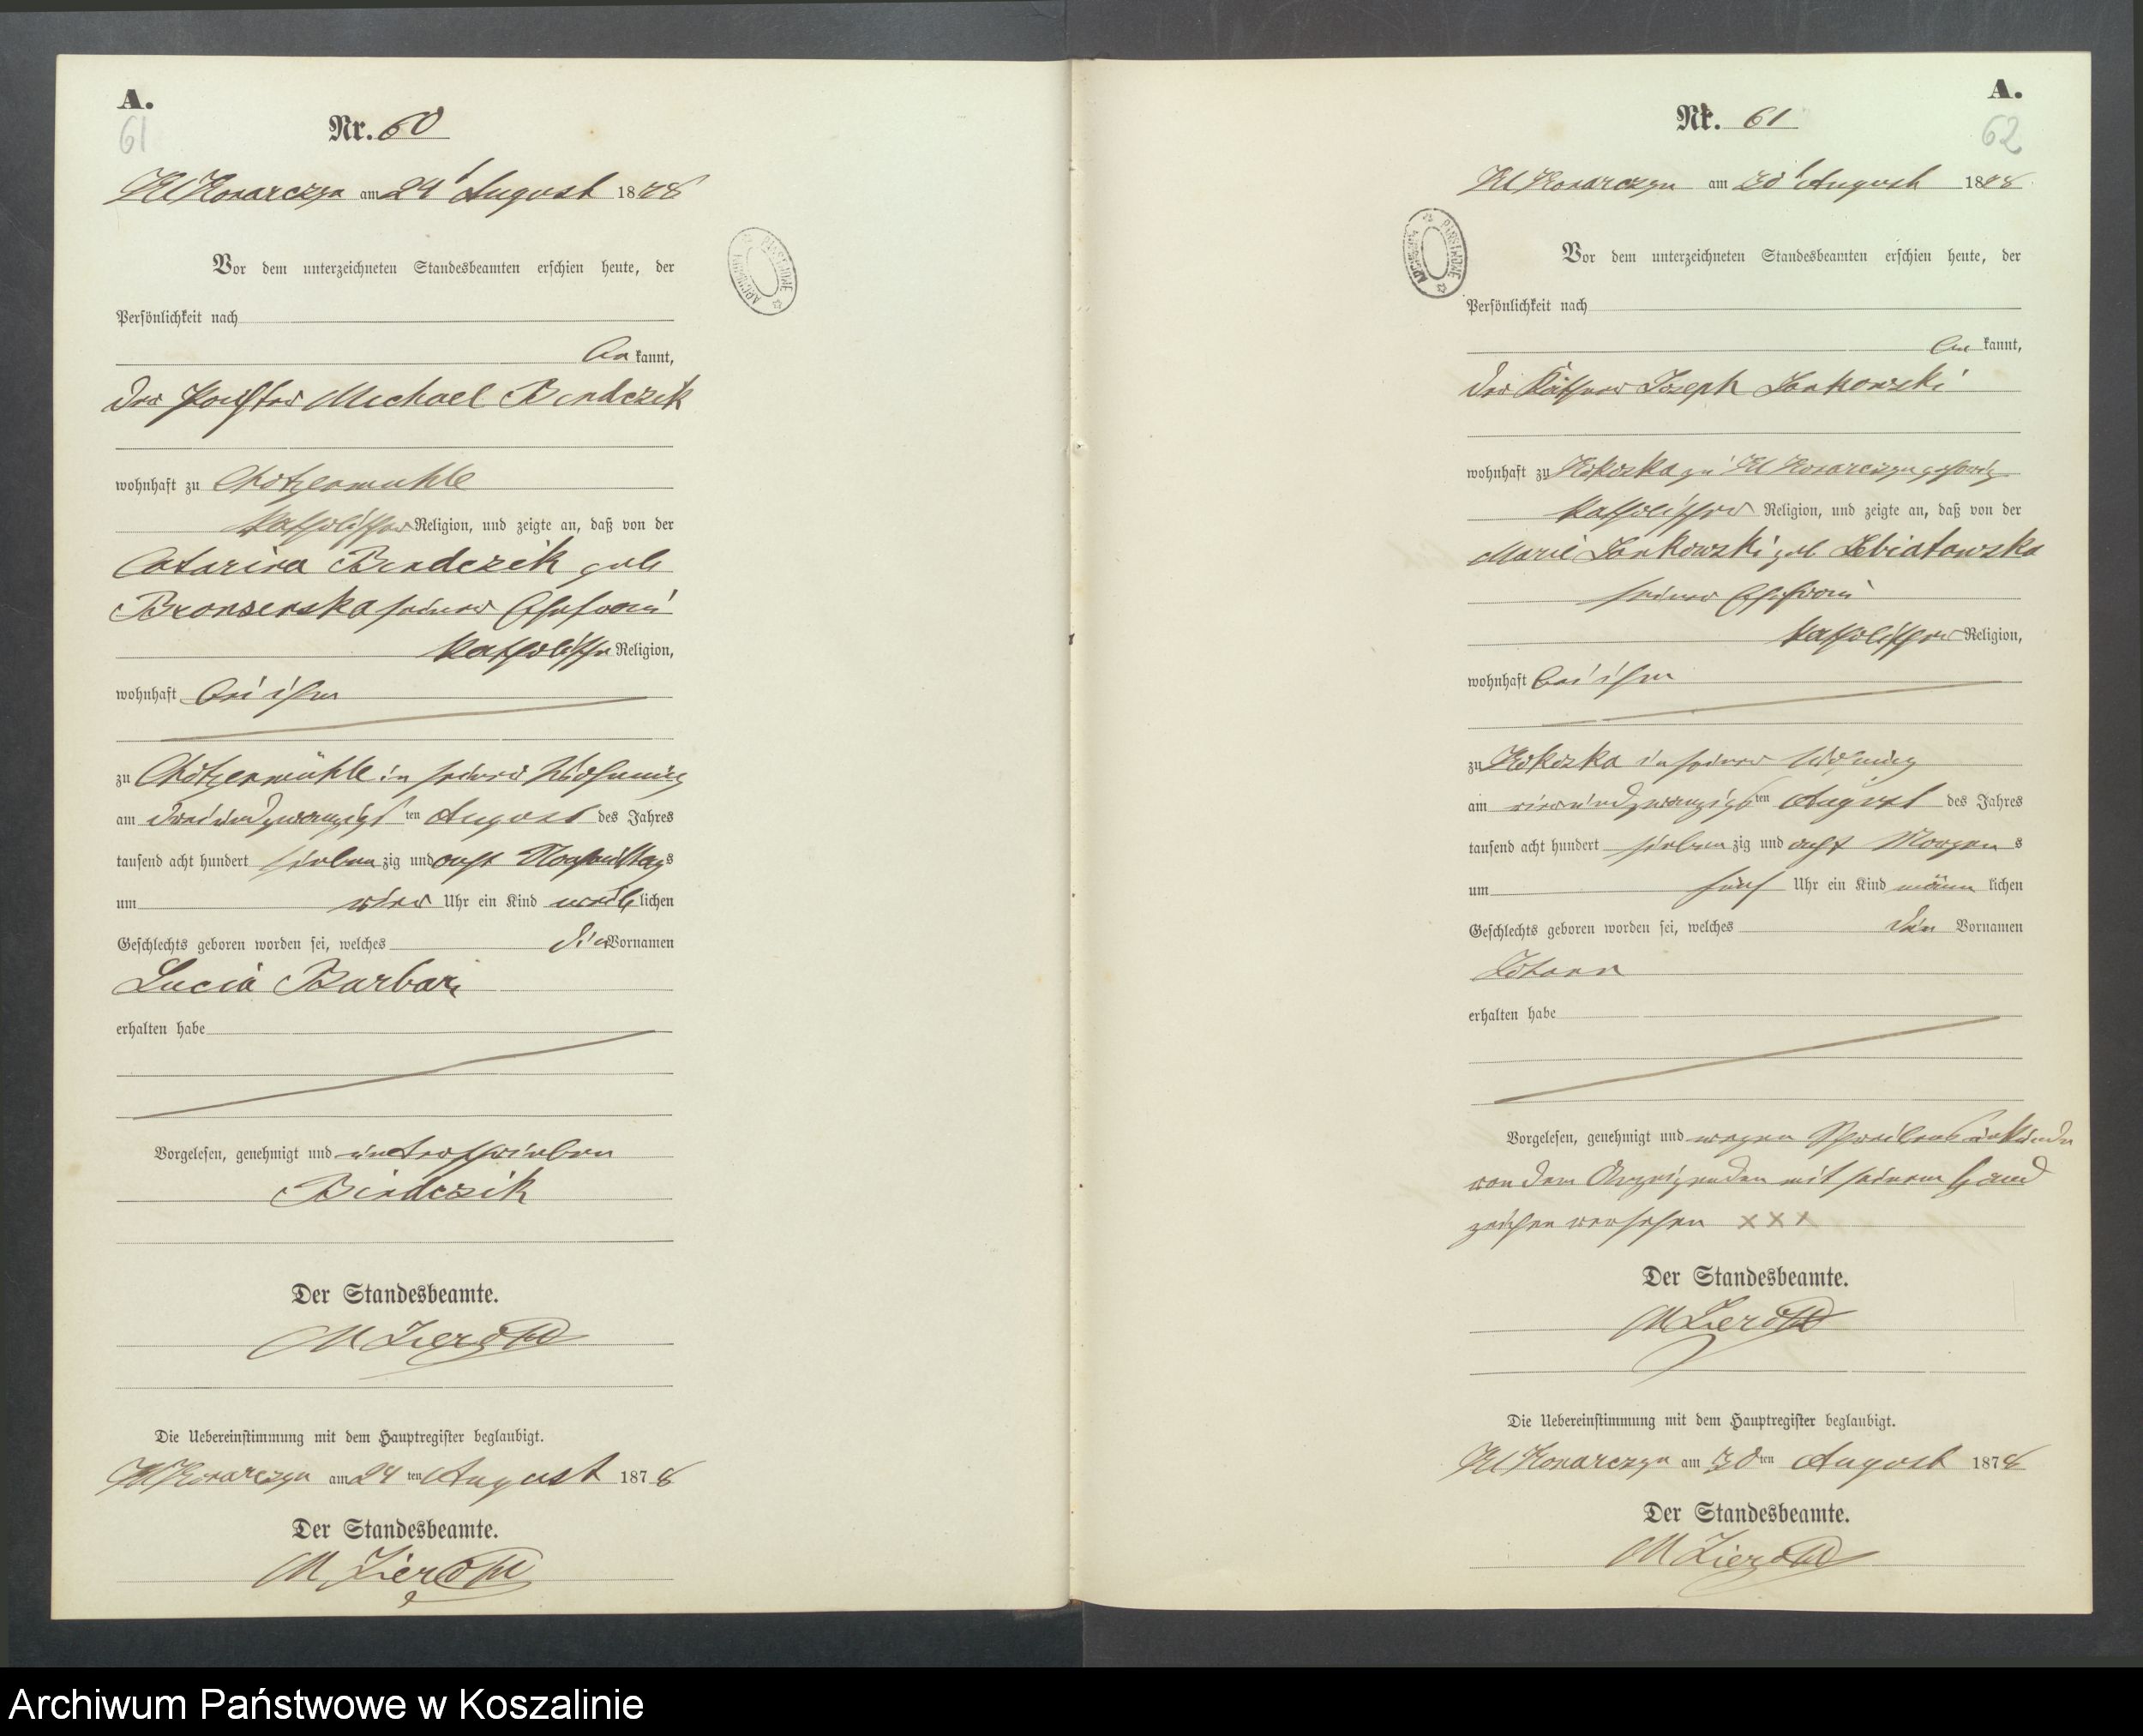 A.
61
Nr. 60
Kl Konarczyn am 24t August 1878
Vor dem unterzeichneten Standesbeamten erschien heute, der
Persönlichkeit nach
be kannt,
der Michael Bindczik
wohnhaft zu
katholischer Religion, und zeigte an, daß von der
Catarina Bindczik geb
seiner Ehefrau
katholischer Religion,
wohnhaft bei ihm
zu in seiner Wohnung
am dreiundzwanzigsten August des Jahres
tausend acht hundert siebenzig und acht Nachmittags
um vier Uhr ein Kind weiblichen
Geschlechts geboren worden sei, welches die Vornamen
Lucia Barbara
erhalten habe
Vorgelesen, genehmigt und unterschrieben
Bindczik
Der Standesbeamte.
Die Uebereinstimmung mit dem Hauptregister beglaubigt.
Kl Konarczyn am 24 ten August 1878
Der Standesbeamte.
A.
62
Nr. 61
Kl Konarczyn am 30t August 1878
Vor dem unterzeichneten Standesbeamten erschien heute, der
Persönlichkeit nach
be kannt,
der Käthner Joseph Jankowski
wohnhaft zu Kokoszka zu Kl Konarczyn gehörig
katholischer Religion, und zeigte an, daß von der
Marie Jankowski geb
seiner Ehefrau
katholischer Religion,
wohnhaft bei ihm
zu Kokoszka in seiner Wohnung
am vierundzwanzigsten August des Jahres
tausend acht hundert siebenzig und acht Morgens
um fünf Uhr ein Kind männlichen
Geschlechts geboren worden sei, welches den Vornamen
Johann
erhalten habe
Vorgelesen, genehmigt und wegen Schreibensunkunde
von dem Anzeigenden mit seinem Hand
zeichen versehen XXX
Der Standesbeamte.
Die Uebereinstimmung mit dem Hauptregister beglaubigt.
Kl Konarczyn am 30 ten August 1878
Der Standesbeamte.
Archiwum Państwowe w Koszalinie